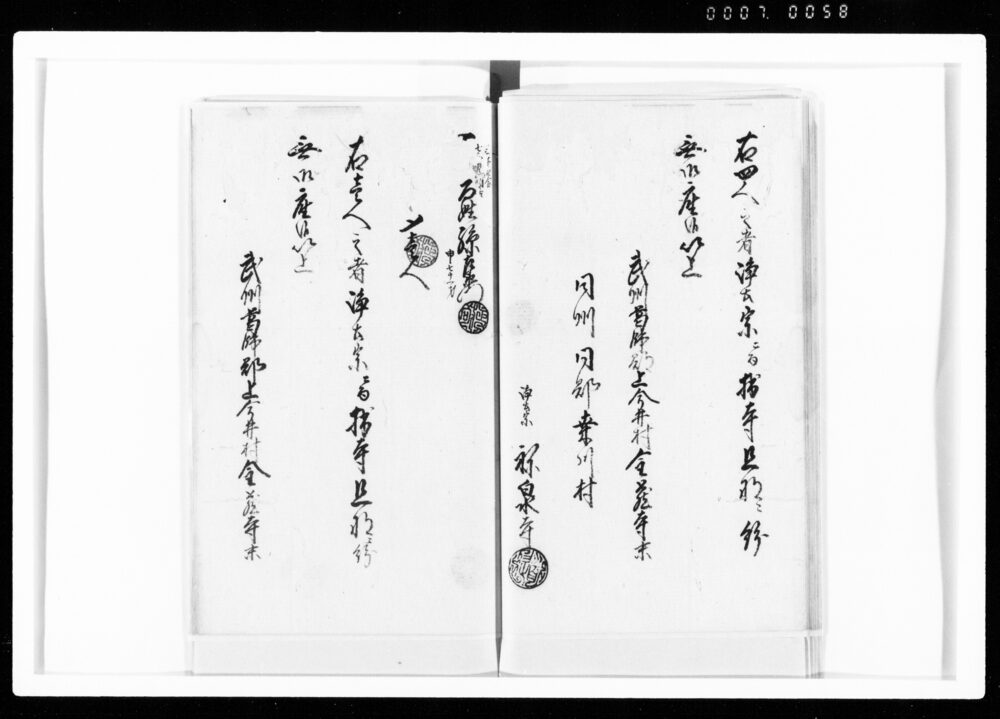 0007. 0058
右四人之者浄土宗ニ而拙寺旦那ニ紛
無御座候以上
武州葛飾郡上今井村金蔵寺末
同州同郡桑川村
浄土宗
泉寺
一
百姓
申七十一才
〆壱人
右壱人之者浄土宗ニ而拙寺旦那ニ紛
無御座候以上
武州葛飾郡上今井村金蔵寺末